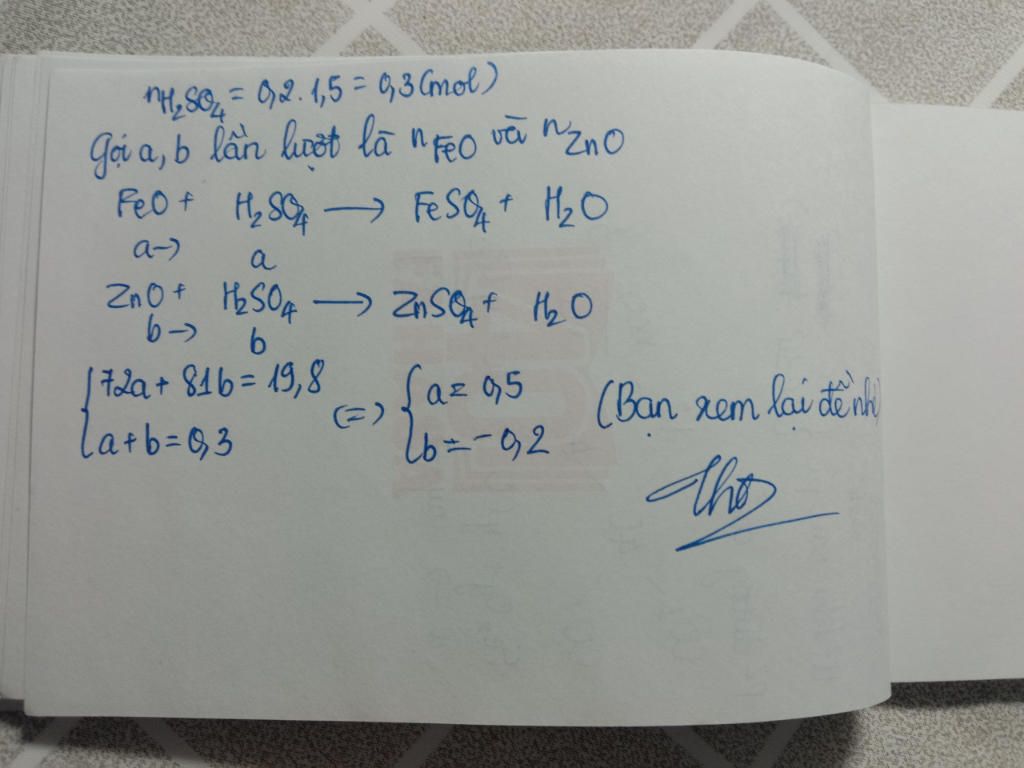 nH₂SO₄ = 0,2 . 1,5 = 0,3 (mol)
Gọi a, b lần lượt là nFeO và nZnO
FeO + H₂SO₄ → FeSO₄ + H₂O
a → a
ZnO + H₂SO₄ → ZnSO₄ + H₂O
b → b
{ 72a + 81b = 19,8
a + b = 0,3
(=) { a = 0,5
b = -0,2
(Bạn xem lại đề nhé